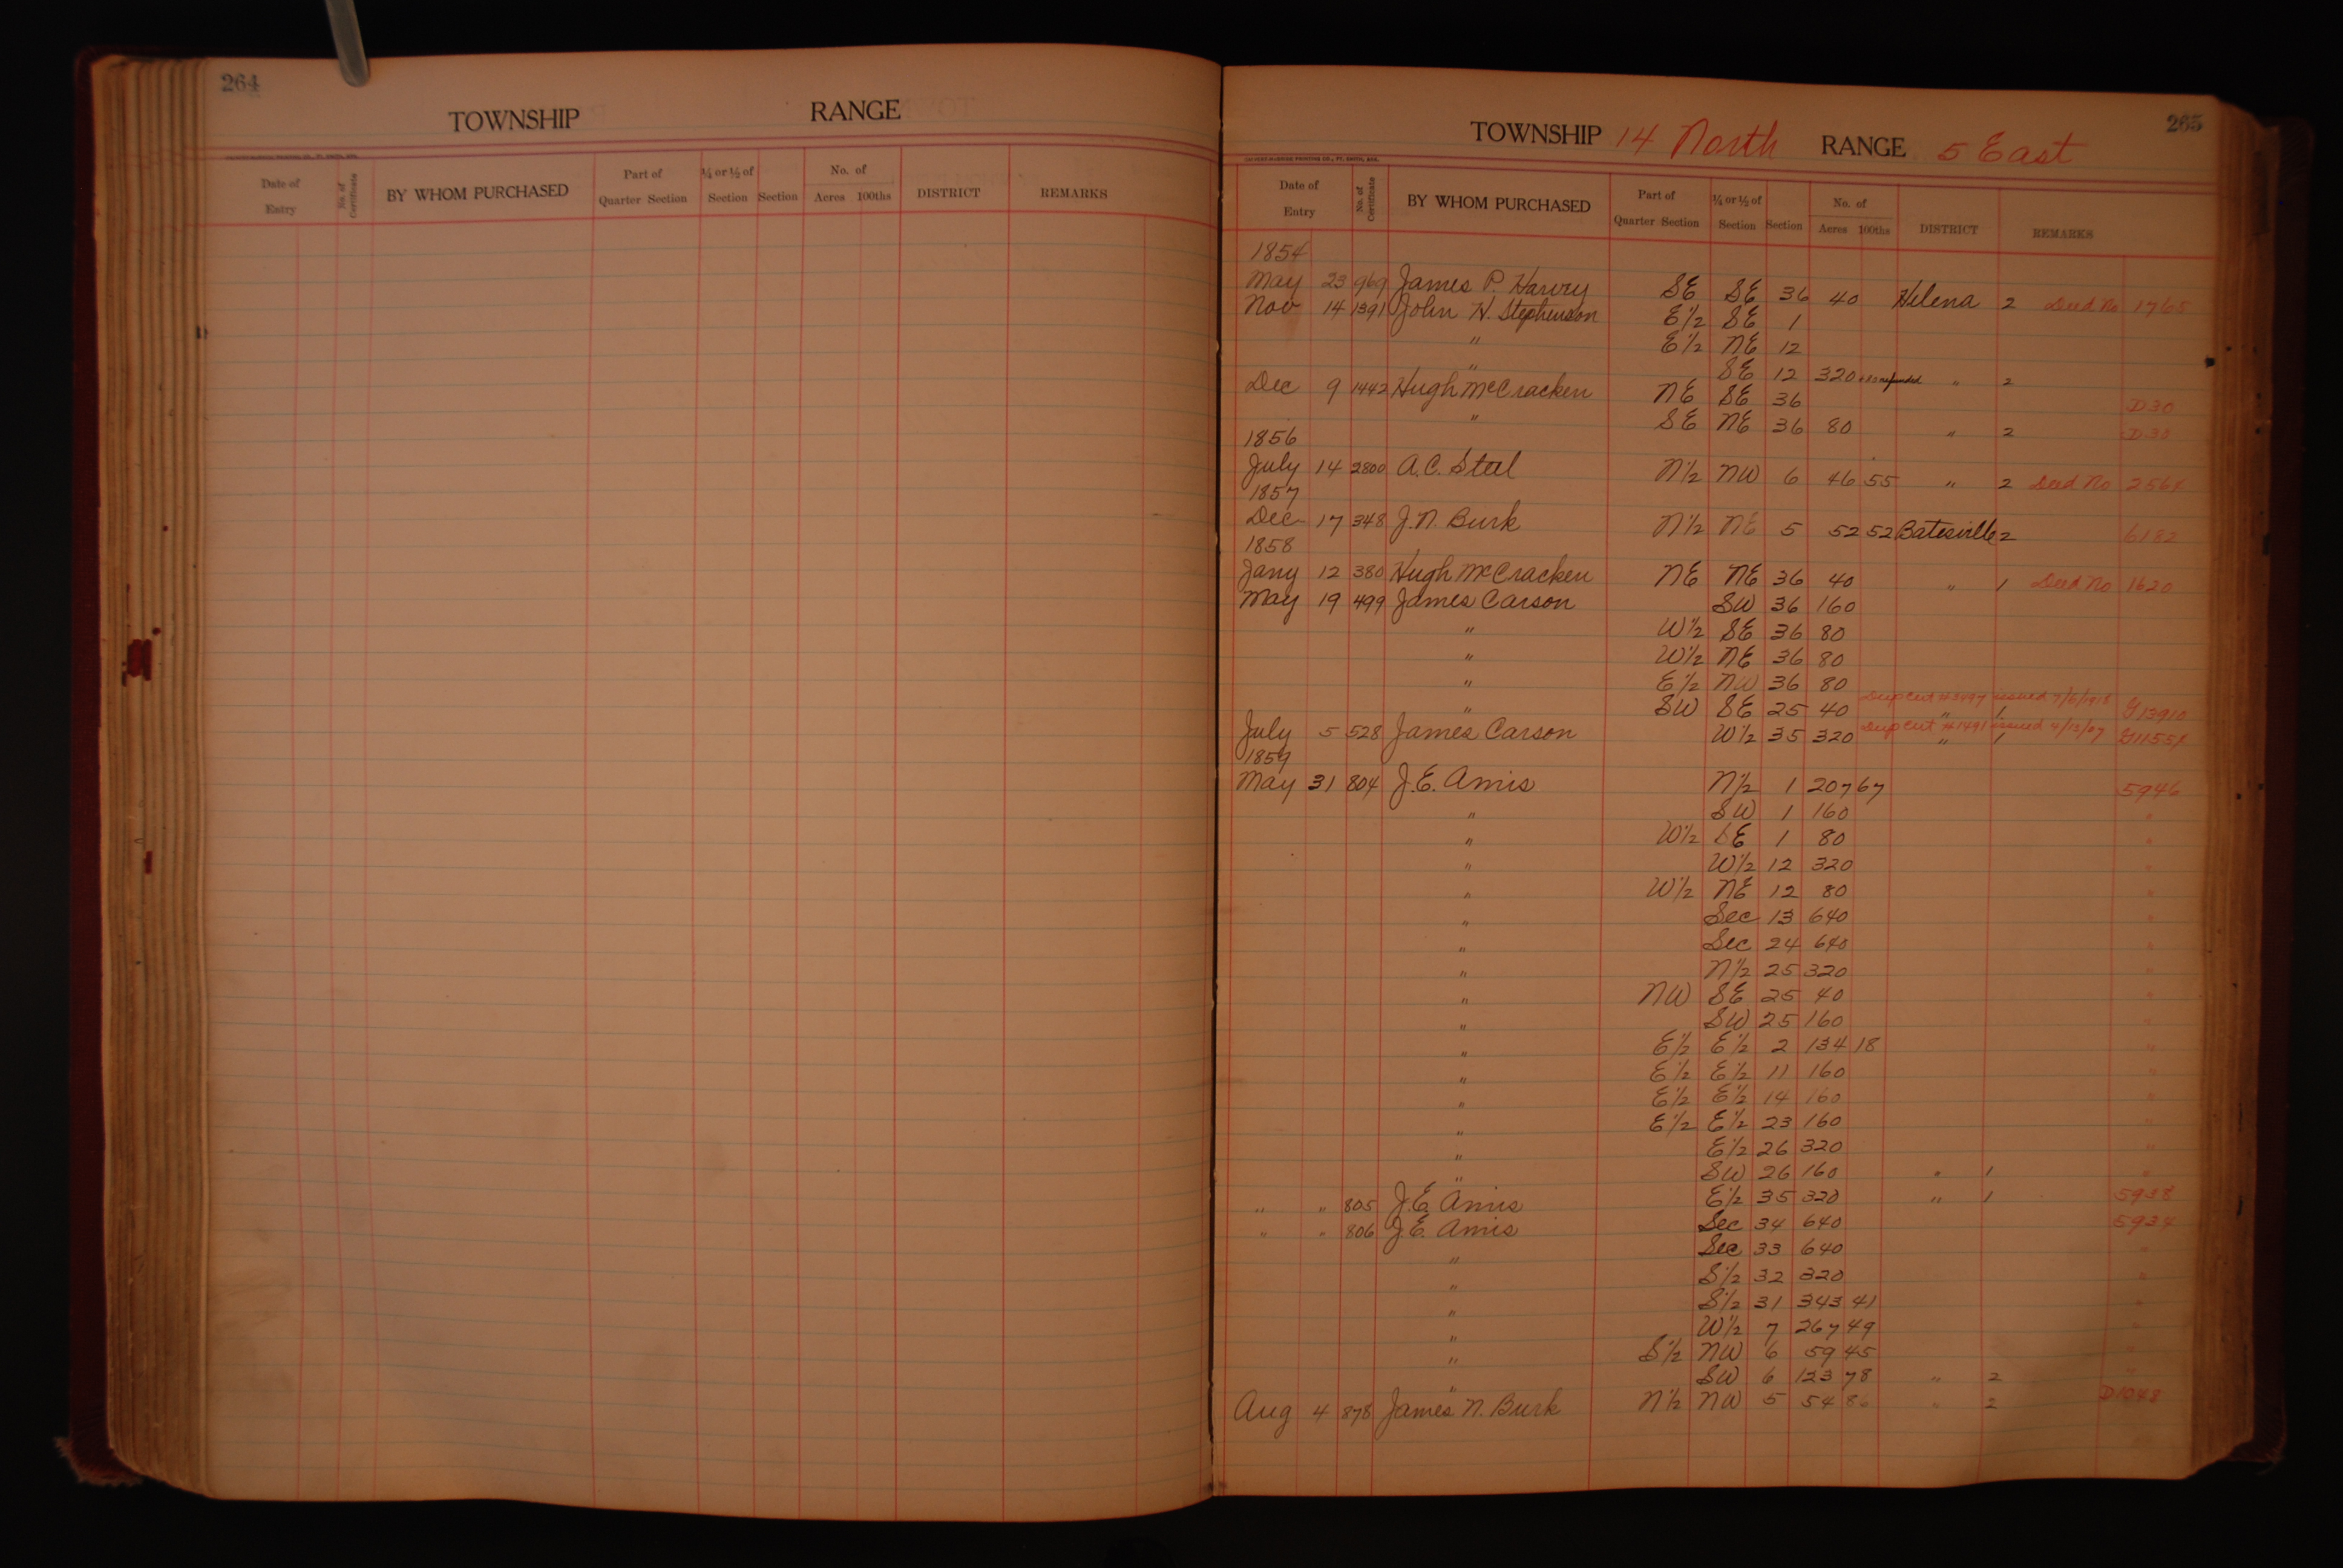 264
TOWNSHIP RANGE
Date of Entry No. of Certificate BY WHOM PURCHASED Part of Quarter Section ¼ or ½ of Section Section No. of Acres 100ths DISTRICT REMARKS
265
TOWNSHIP 14 North RANGE 5 East
Date of Entry No. of Certificate BY WHOM PURCHASED Part of Quarter Section ¼ or ½ of Section Section No. of Acres 100ths DISTRICT REMARKS
1854
May 23 969 James P. Harvey SE SE 36 40 Helena 2 Deed No 1765
Nov 14 1391 John H. Stephenson E½ SE 1
" E½ NE 12
" SE 12 320 " 2
Dec 9 1442 Hugh McCracken NE SE 36 D30
" SE NE 36 80 " 2 D30
1856
July 14 2800 A.C. Steel N½ NW 6 46 55 " 2 Deed No 2564
1857
Dec 17 348 J.N. Burk N½ NE 5 52 52 Batesville 2 6182
1858
Jany 12 380 Hugh McCracken NE NE 36 40 " 1 Deed No 1620
May 19 499 James Carson SW 36 160
" W½ SE 36 80
" W½ NE 36 80
" E½ NW 36 80
" SW SE 25 40 Dup Cert #3497 issued 7/6/1918 " 1 G13910
July 5 528 James Carson W½ 35 320 Dup Cert #1491 issued 4/12/07 " 1
1859
May 31 804 J.E. Amis N½ 1 207 67 5946
" SW 1 160 "
" W½ SE 1 80 "
" W½ 12 320 "
" W½ NE 12 80 "
" Sec 13 640 "
" Sec 24 640 "
" N½ 25 320 "
" NW SE 25 40 "
" SW 25 160 "
" E½ E½ 2 134 18 "
" E½ E½ 11 160 "
" E½ E½ 14 160 "
" E½ E½ 23 160 "
" E½ 26 320 "
" SW 26 160 " 1 "
" " 805 J.E. Amis E½ 35 320 " 1 5938
" " 806 J.E. Amis Sec 34 640 5934
" Sec 33 640 "
" S½ 32 320 "
" S½ 31 343 41 "
" W½ 7 267 49 "
" S½ NW 6 59 45 "
" SW 6 123 78 " 2 "
Aug 4 878 James N. Burk N½ NW 5 54 86 " 2 D1048